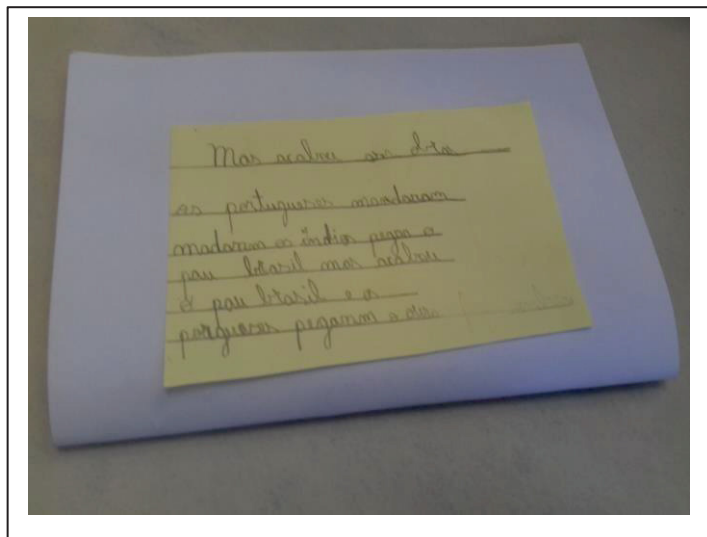 Mas acabou
os portugueses mandaram
madaram os índios pega o
pau brasil mas acabou
o pau brasil e os
porgueses pegaram o